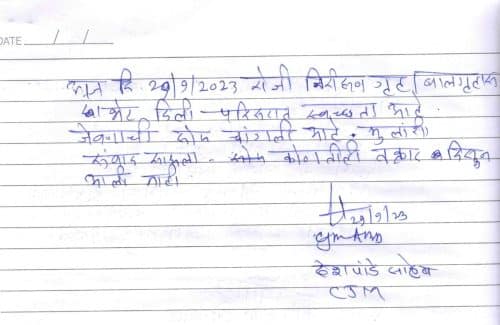 DATE __/__/__
आज दि. 29/9/2023 रोजी निरीक्षण गृह, बालगृहास
भेट दिली - परिसरात स्वच्छता आहे.
जेवणाची सोय चांगली आहे. मुलांशी
संवाद साधला. कोणतीही तक्रार दिसून
आली नाही.
29/9/23
देशपांडे साहेब
CJM